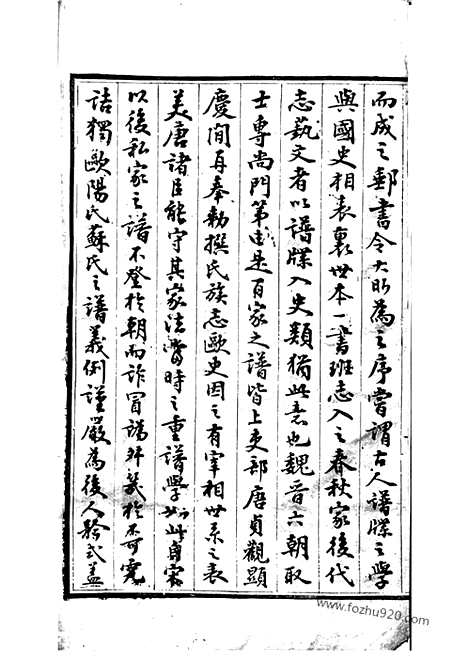 而成之郵書令大昕為之序嘗謂古人譜牒之學
與國史相表裏世本一書班志入之春秋家後代
志藝文者以譜牒入史類猶此意也魏晉六朝取
士專尚門第由是百家之譜皆上吏部唐貞觀顯
慶間再奉勅撰氏族志歐史因之有宰相世系之表
美唐諸臣能守其家法當時之重譜學如此自宋
以後私家之譜不登於朝而詐冒譌舛幾於不可究
詰獨歐陽氏蘇氏之譜義例謹嚴為後人矜式蓋
www.fozhu920.com